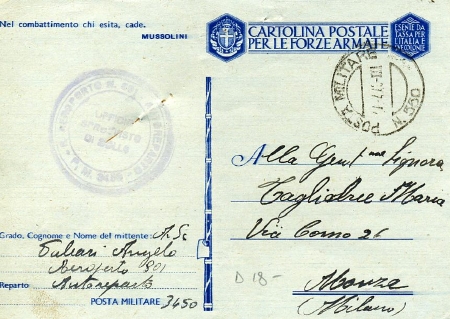 Nel combattimento chi esita, cade.
MUSSOLINI
CARTOLINA POSTALE
PER LE FORZE ARMATE
ESENTE DA
TASSA PER
L'ITALIA E
SUE COLONIE
POSTA MILITARE
N. 550
P.M. 3450
Alla Gent ma Signora
Tagliabue Maria
Via Como 26
Monza
(Milano)
Grado, Cognome e Nome del mittente: A.Sc
Angelo
Aeroporto 801
Reparto Autoreparto
POSTA MILITARE 3450
D 18-